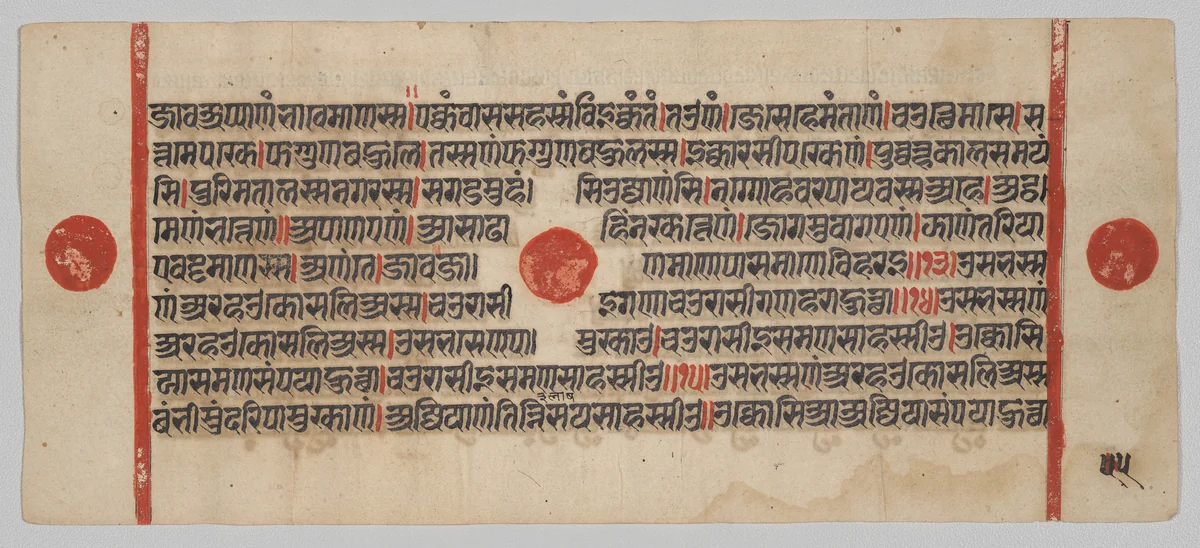 जाव अप्पाणं भावेमाणस्स । एक्कं वाससहस्सं विइक्कंतं । तओ णं । जे से हेमंताणं । चउत्थे मासे । स
त्तमे पक्खे । फग्गुणबहुले । तस्स णं फग्गुणबहुलस्स । इक्कारसीपक्खेणं । पुव्वण्हकालसमयं
सि । पुरिमतालस्स नगरस्स । सगडमुहंसि उज्जाणंसि । नग्गोहवरपायवस्स अहे । अट्ठ
मेणं भत्तेणं ॥ अपाणएणं । आसाढाहिं नक्खत्तेणं । जोगमुवागएणं । झाणंतरिया
ए वट्टमाणस्स । अणंते । जाव जाणमाणे पासमाणे विहरइ ॥१३॥ उसभस्स
णं अरहओ कोसलिअस्स । चउरासीइ गणा चउरासी गणहरा हुत्था ॥१४॥ उसभस्स णं
अरहओ कोसलिअस्स । उसभसेणपामुक्खाओ । चउरासीइ समणसाहस्सीओ । उक्कोसि
आ समणसंपया हुत्था । चउरासीइ समणसाहस्सीओ ॥१५॥ उसभस्स णं अरहओ कोसलिअस्स
बंभीसुंदरिपामुक्खाणं । अज्जियाणं तिन्नि सयसाहस्सीओ ॥ उक्कोसिआ अज्जियासंपया हुत्था
३ लाष
५५